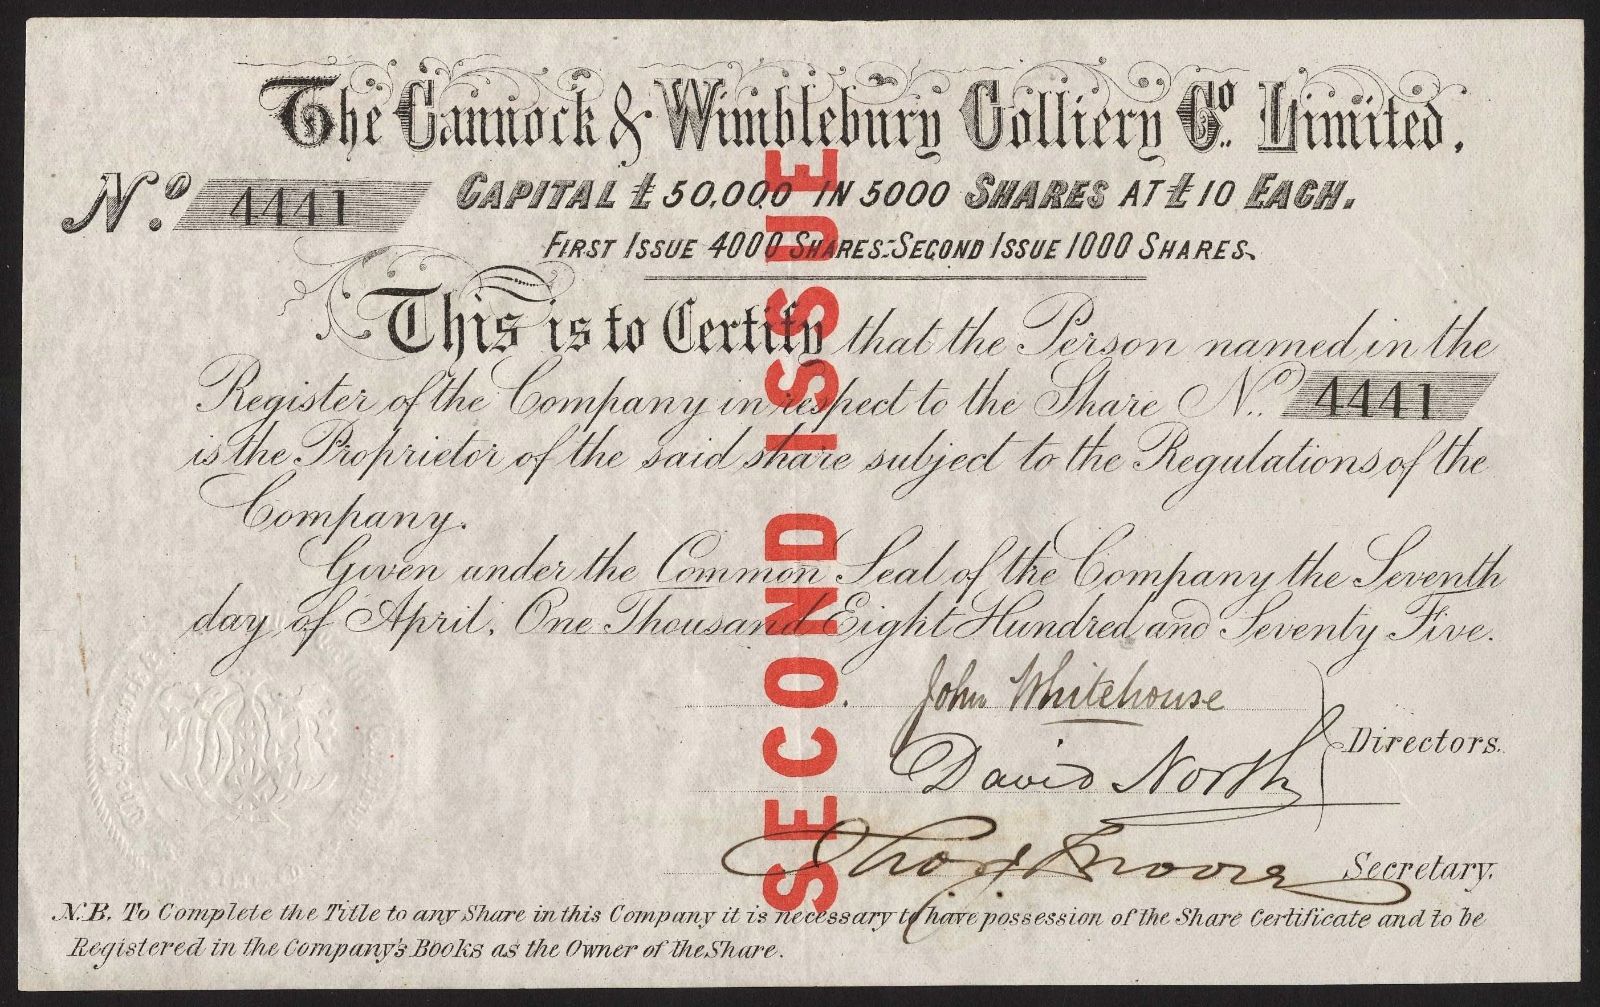 The Cannock & Wimblebury Colliery Co. Limited.
No. 4441
CAPITAL £50,000 IN 5000 SHARES AT £10 EACH.
FIRST ISSUE 4000 SHARES-SECOND ISSUE 1000 SHARES.
This is to Certify that the Person named in the
Register of the Company in respect to the Share No. 4441
is the Proprietor of the said share subject to the Regulations of the
Company.
Given under the Common Seal of the Company the Seventh
day of April, One Thousand Eight Hundred and Seventy Five.
John Whitehouse
David North
Directors.
Secretary.
N.B. To Complete the Title to any Share in this Company it is necessary to have possession of the Share Certificate and to be
Registered in the Company's Books as the Owner of the Share.
SECOND ISSUE